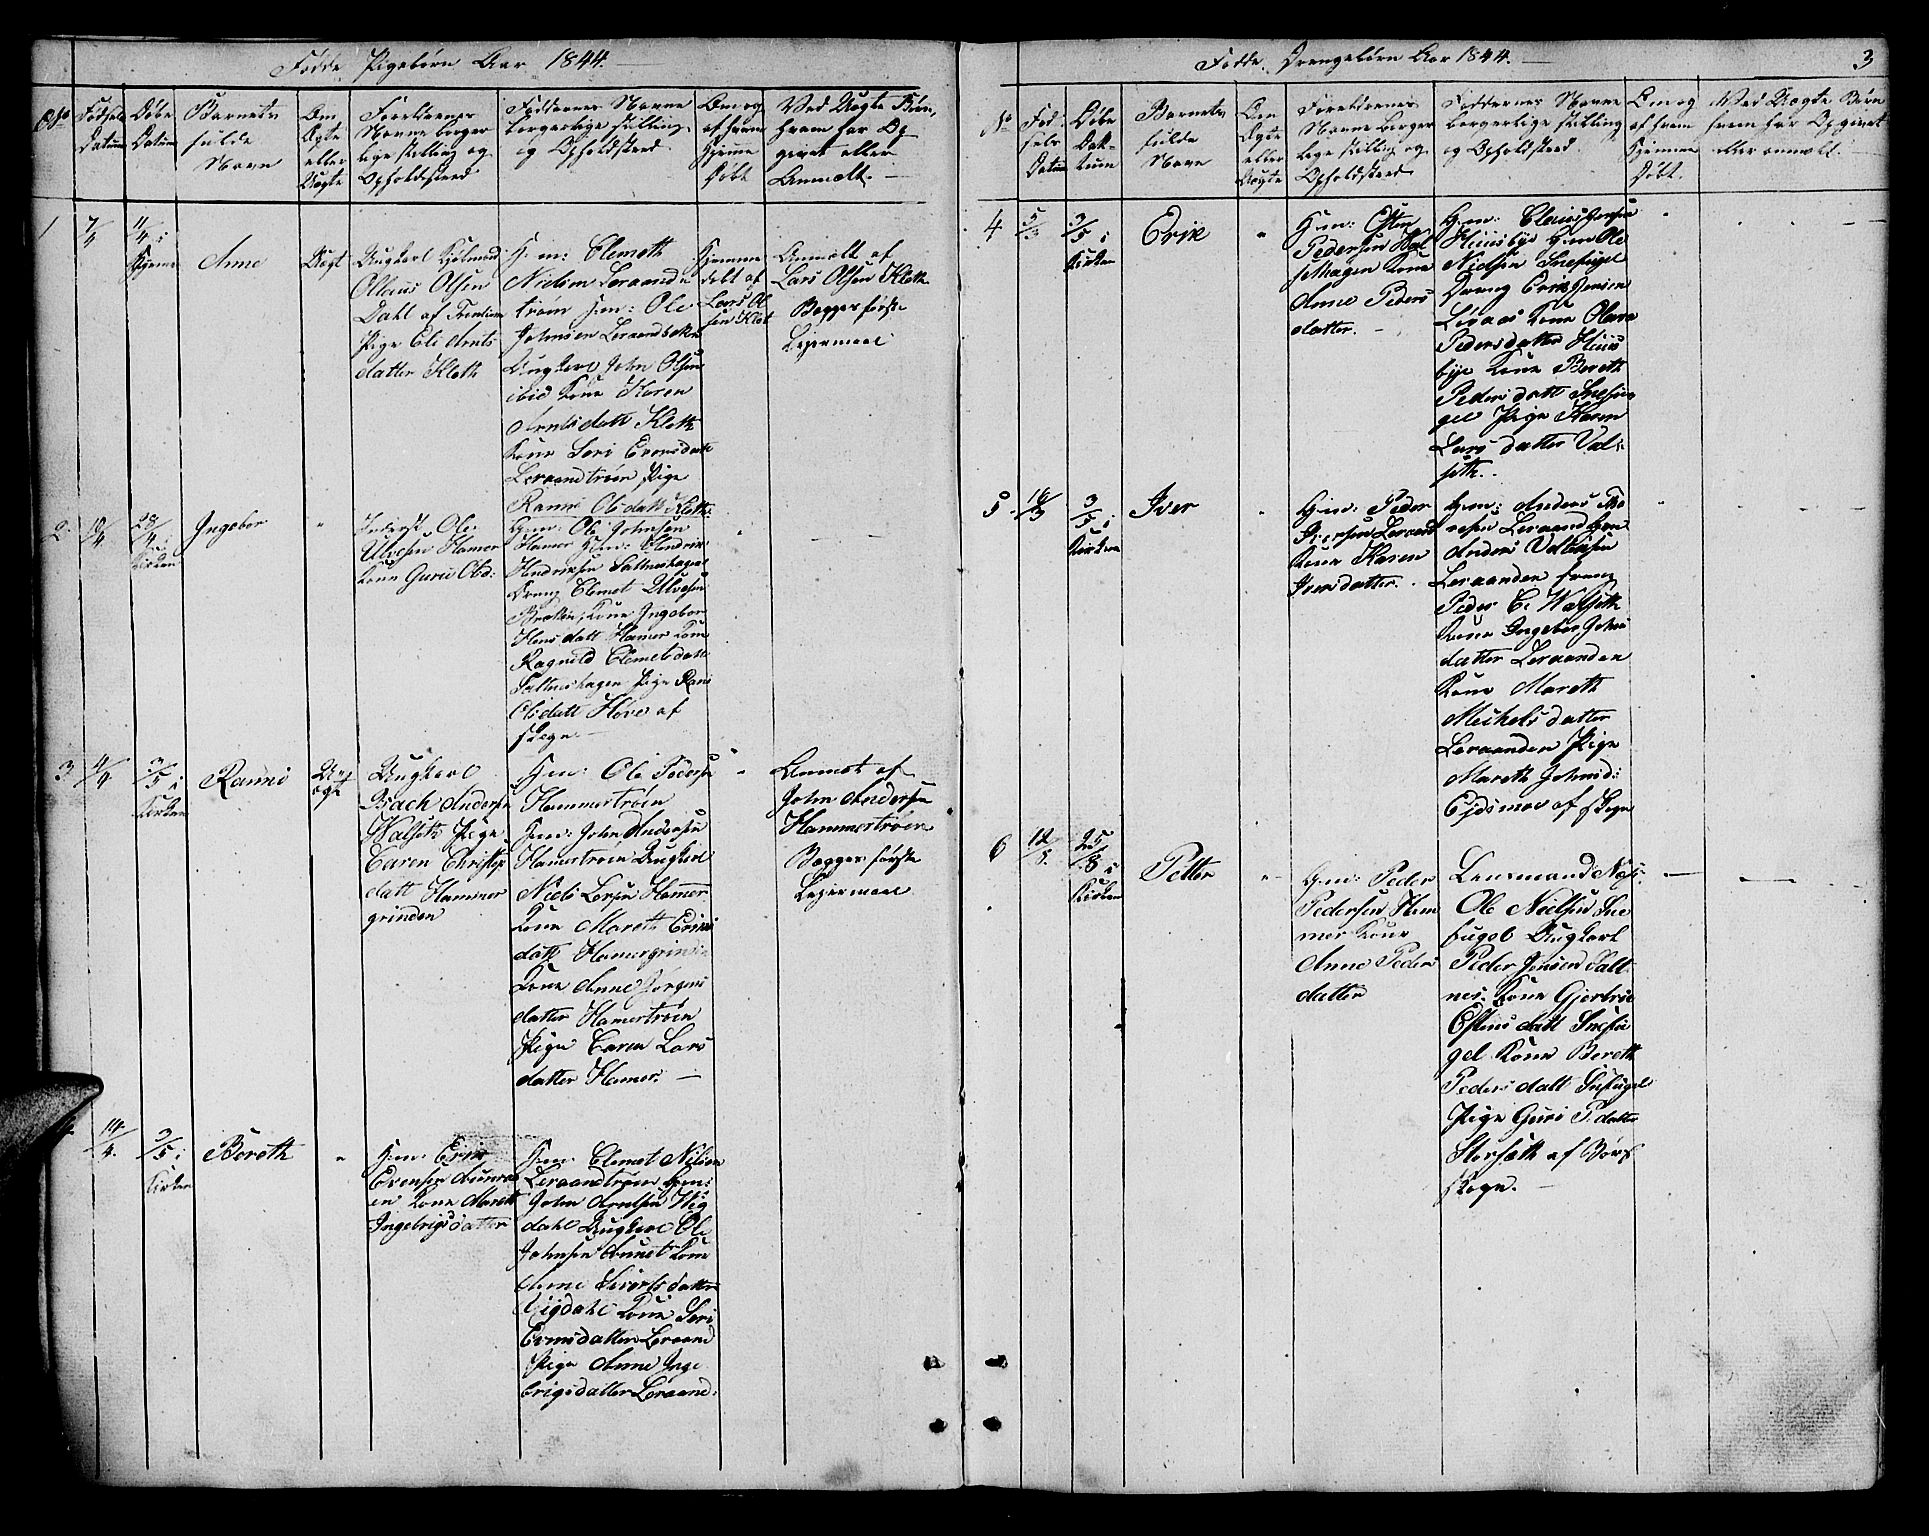 Fødde Pigebørn Aar 1844.
No
Fødsels
Datum
Døbe
Datum
Barnets
fulde
Navn
Om
Ægte
eller
Uægte
Foreldrenes
Navne borger
lige stilling og
Opholdsted
Faddernes Navne
borgerlige stilling
og Opholdsted
Om og
af hvem
Hjemme
Døbt
Ved Uægte Børn,
hvem har Op
givet eller
Anmelt.
1
7/4
11/4 i
Hjeme
Anne
Uægt
Ungkarl
Olaus Olsen
Dahl af
Pige Eli Arnts
datter Kleth
G: m: Clemeth
Nielsen Leraand
trøen Gm: Ole
Johnsen Leraandbaken
Ungkarl John Olsen
ibid Kone Karen
Arntsdatt Kleth
Kone Seri Evensdatt
Leraandtrøen Pige
Ranni Olsdatt Kleth
Hjemme
døbt af
Lars Ol
sen Klet
Anmelt af
Lars Olsen Kleth
Begges første
Leiermaal
2
10/4
28/4 i
Kirken
Ingebor
"
Inderst Ole
Ulvesen Hamer
Kone Guru Olsd:
Gm: Ole Johnsen
Hamer Gm: Hendrik
Hendriksen Saltneshagen
Dreng Clemet Ulvesen
Kone Ingebor
Hansdatt Hamer Kone
Ragnild Clemetsdatt
Saltneshagen Pige Rani
Olsdatt Hover af
skogn
3
4/4
3/5 i
Kirken
Ranni
Uæ
ægt
Ungkarl
Isach Andersen
Walseth Pige
Caren Christop
datt Hammer
grinden
Gm: Ole Pedersen
Hammertrøen
Gm: John Andersen
Hamertrøen Ungkarl
Niels Larsen Hamer
Kone Mareth Eriks
datt Hamergrind
Kone Anne Jørgens
datter Hamertrøen
Pige Caren Lars
datter Hamer.
"
Anmelt af
John Andersen
Hammertrøen
Begges første
Leiermaal
4
14/4
3/5 i
Kirken
Bereth
"
Gm: Erik
Evensen Aunet
en Kone Mareth
Ingebrigsdatter
Gm: Clemet Nilsen
Leraandtrøen Gm:
John Arntsen Wig
dahl Ungkarl Ole
Johnsen Aunet Kone
Anne Sivertsdatter
Vigdahl Kone Seri
Evensdatter Leraand
Pige Anne Inge
brigsdatter Leraand:
Fødde Drengebørn Aar 1844.
3
No
Fød
sels
Datum
Døbe
Da-
tum
Barnets
fulde
Navn
Om
Ægte
eller
Uægte
Foreldrenes
Navne Borger
lige stilling og
Opholdsted
Faddernes Navne
borgerlige stilling
og Opholdsted
Om og
af hvem
Hjemme
Døbt.
Ved Uægte Børn
hvem har Opgivet
eller anmelt.
4
5/3
3/5 i
Kirken
Erik
"
Gm: Esten
Pedersen Wal
sethagen Kone
Anne Peders
datter.
Gm: Claus Jensen
Huusbye Gm Ole
Nielsen Snefugel
Dreng Erik Jensen
Kone Olava
Pedersdatter Huus
bye Kone Bereth
Pedersdatt Snefu
gel Pige Karen
Larsdatter Val-
seth.
5
16/3
3/5 i
Kirken
Iver
Gm: Peder
Iversen Leraand
Kone Karen
Iversdatter.
Gm: Anders Tho
resen Leraand Gm
Anders
Leraanden Dreng
Peder E. Walseth
Kone Ingebor Johns
datter Leraanden
Kone Mareth
Michelsdatter
Leraanden Pige
Mareth Johnsd:
Eidsmoe af skogn
6
12/5.
25/8 i
Kirken
Petter
"
Gm: Peder
Pedersen Hem
mer Kone
Anne Peders
datter
Lensmand
Ole Nielsen Sne
fugel Ungkarl
Peder Jensen Salt
nes. Kone Gjertru
Estensdatt Snefu
gel Kone Bereth
Pedersdatt Snefugel
Pige Guri P.datter
Storseth af Børs
skogn.